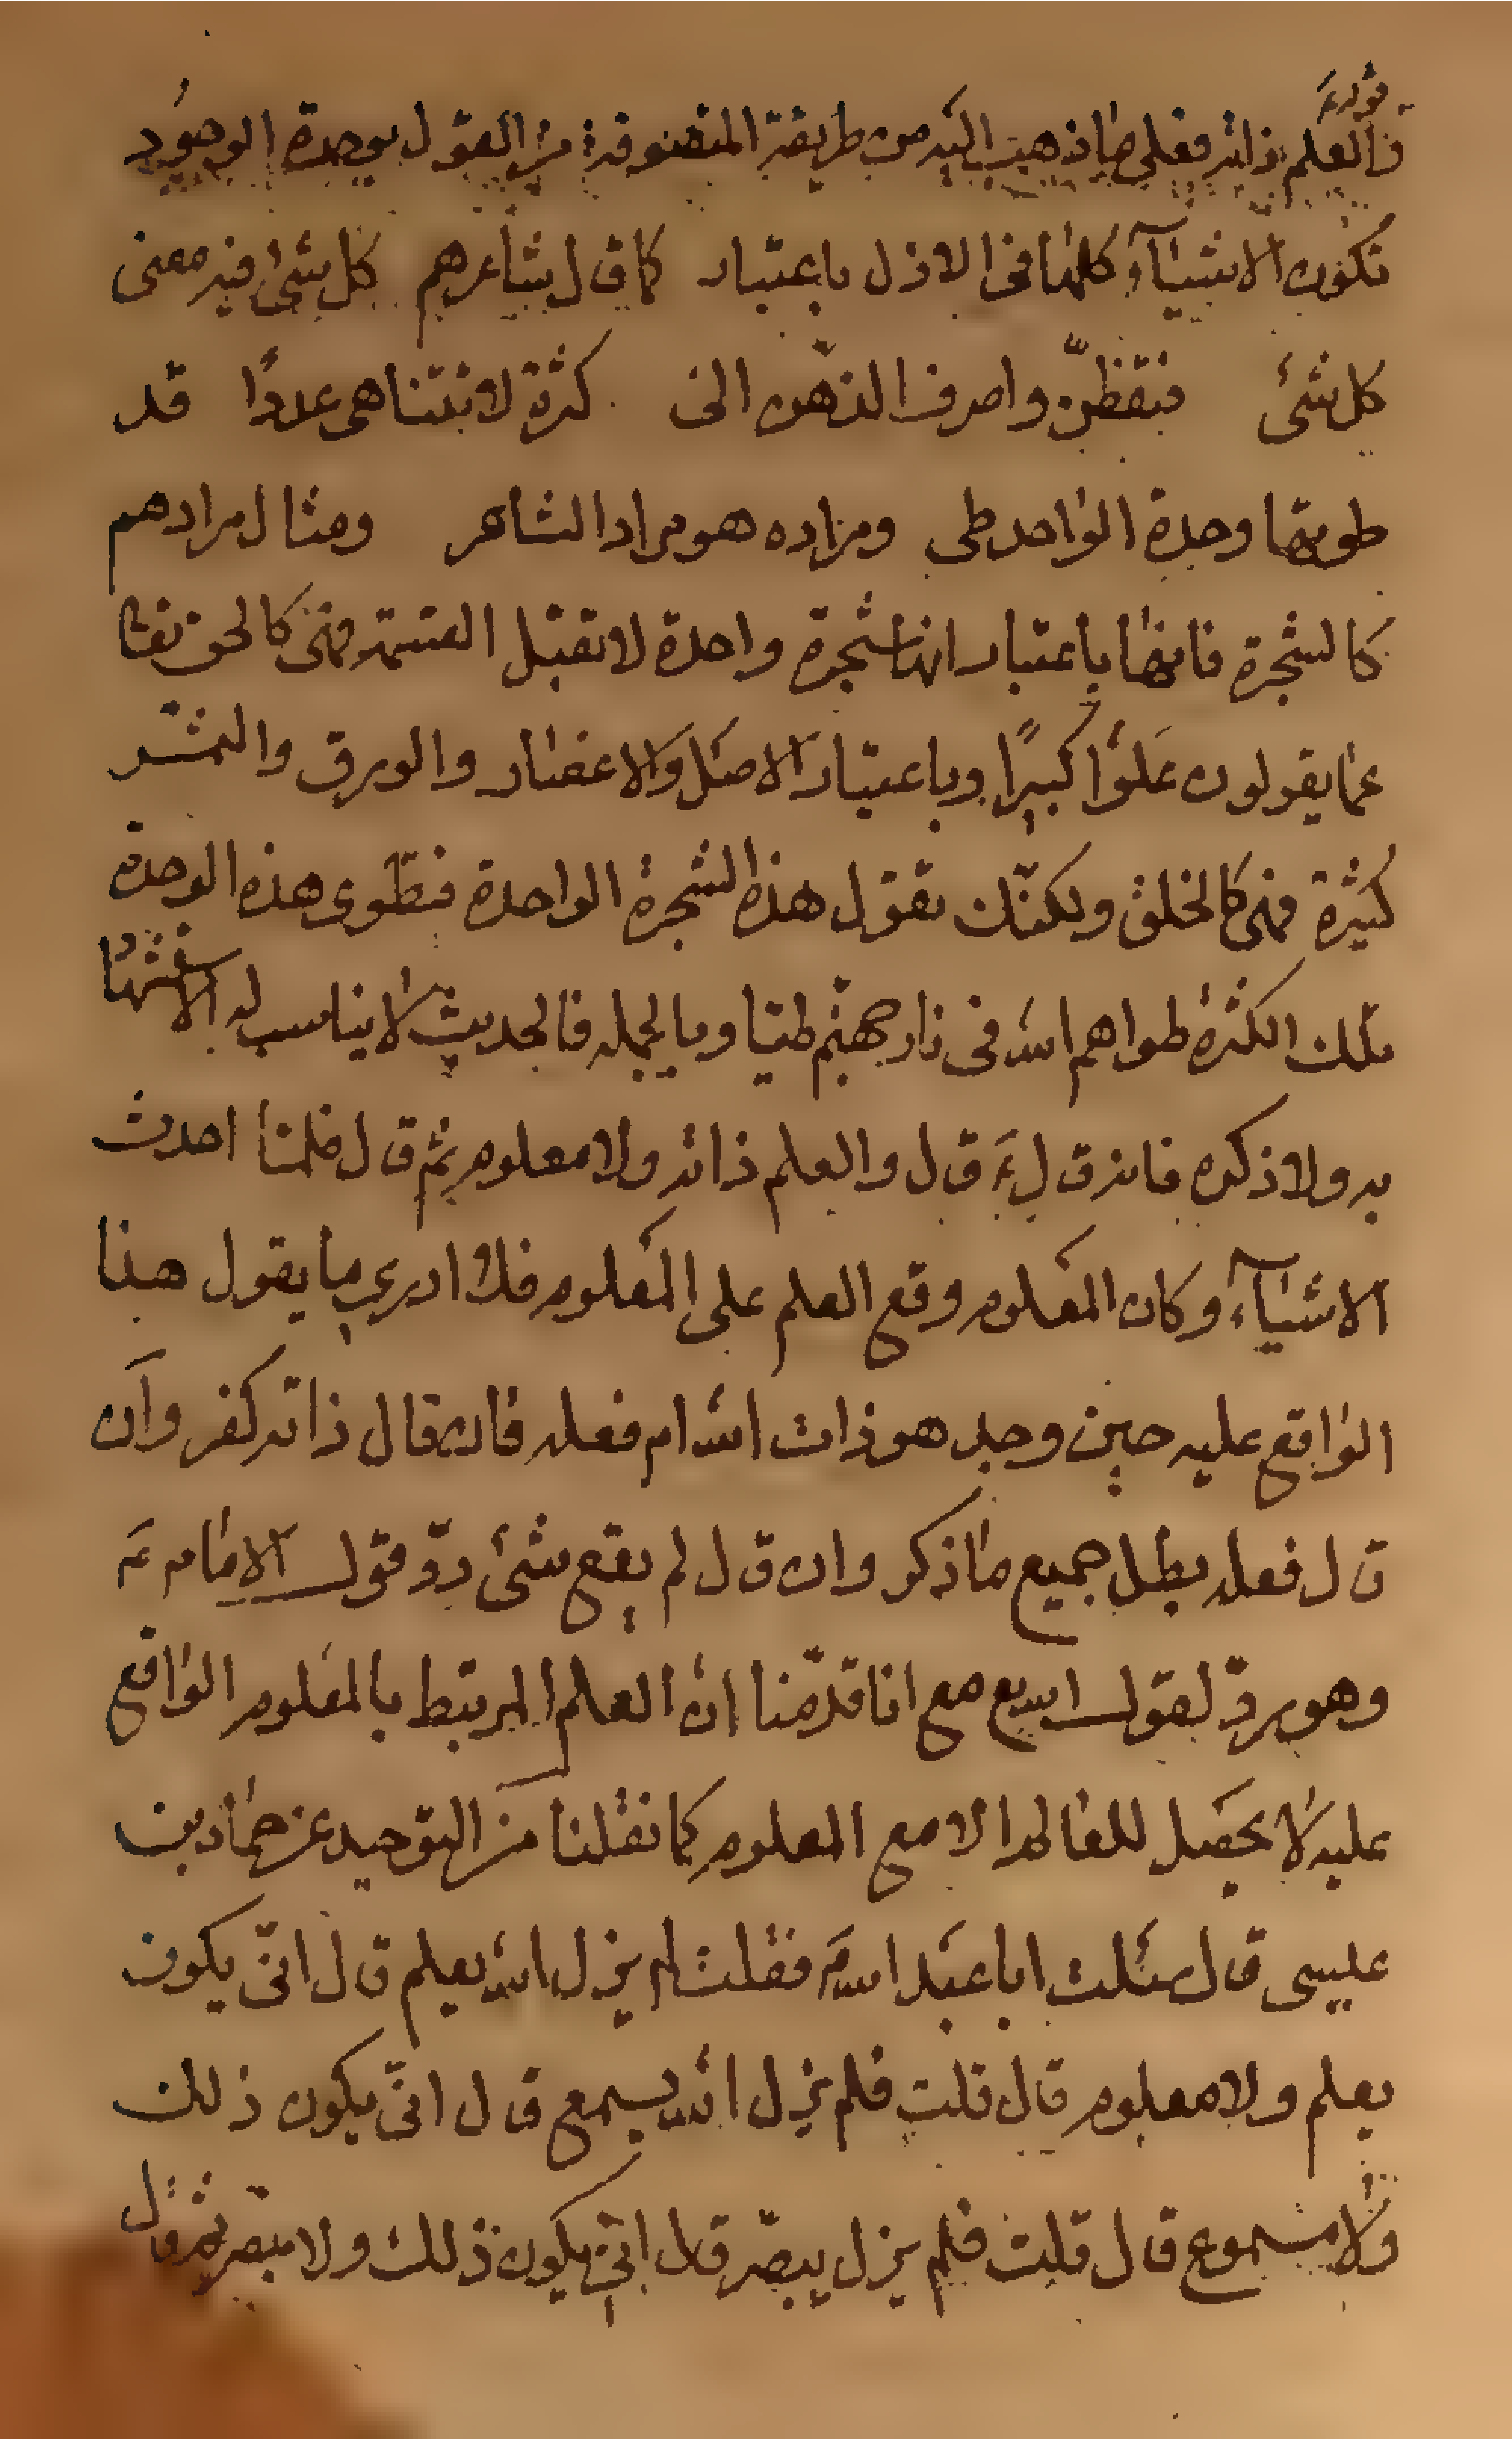 قوله ع
والعلم ذاته فعلى ما ذهب اليه من طريقة المتصوفة من القول بوحدة الوجود
تكون الاشيآء كلها في الازل باعتبار كما قال شاعرهم كل شئ فيه معنى
كل شئ فتفطّن واصرف الذهن الى كثرة لا تتناهى عددًا قد
طوتها وحدة الواحد طي ومراده هو مراد الشاعر ومثال مرادهم
كالشجرة فانها باعتبار انها شجرة واحدة لا تقبل القسمة فهى كالحق تعالى
عما يقولون علوًا كبيرًا وباعتبار الاصل والاغصان والورق والثمر
كثيرة فهى كالخلق ولكنّك تقول هذه الشجرة الواحدة فتطوى هذه الوحدة
تلك الكثرة طواهم الله في نار جهنّم طيّا وبالجمله فالحديث لا يناسب له الاستشهاد
به ولا ذكره فانه قال ع قال والعلم ذاته ولا معلوم ثم قال فلمّا احدث
الاشيآء وكان المعلوم وقع العلم على المعلوم فلا ادري ما يقول هذا
الواقع عليه حين وجد هو ذات الله ام فعله فان قال ذاته كفر وان
قال فعله بطل جميع ما ذكر وان قال لم يقع شئ ردّ قول الامام ع
وهو يردّ لقول الله مع انا قدّمنا ان العلم المرتبط بالمعلوم الواقع
عليه لا يحصل للعالم الا مع المعلوم كما نقلنا من التوحيد عن حمّاد بن
عليسى قال سئلت ابا عبد الله ع فقلت لم يزل الله يعلم قال انّى يكون
يعلم ولا معلوم قال قلت فلم يزل الله يسمع قال انّى يكون ذلك
ولا مسموع قال قلت فلم يزل يبصر قال انّى يكون ذلك ولا مبصر ثم قال